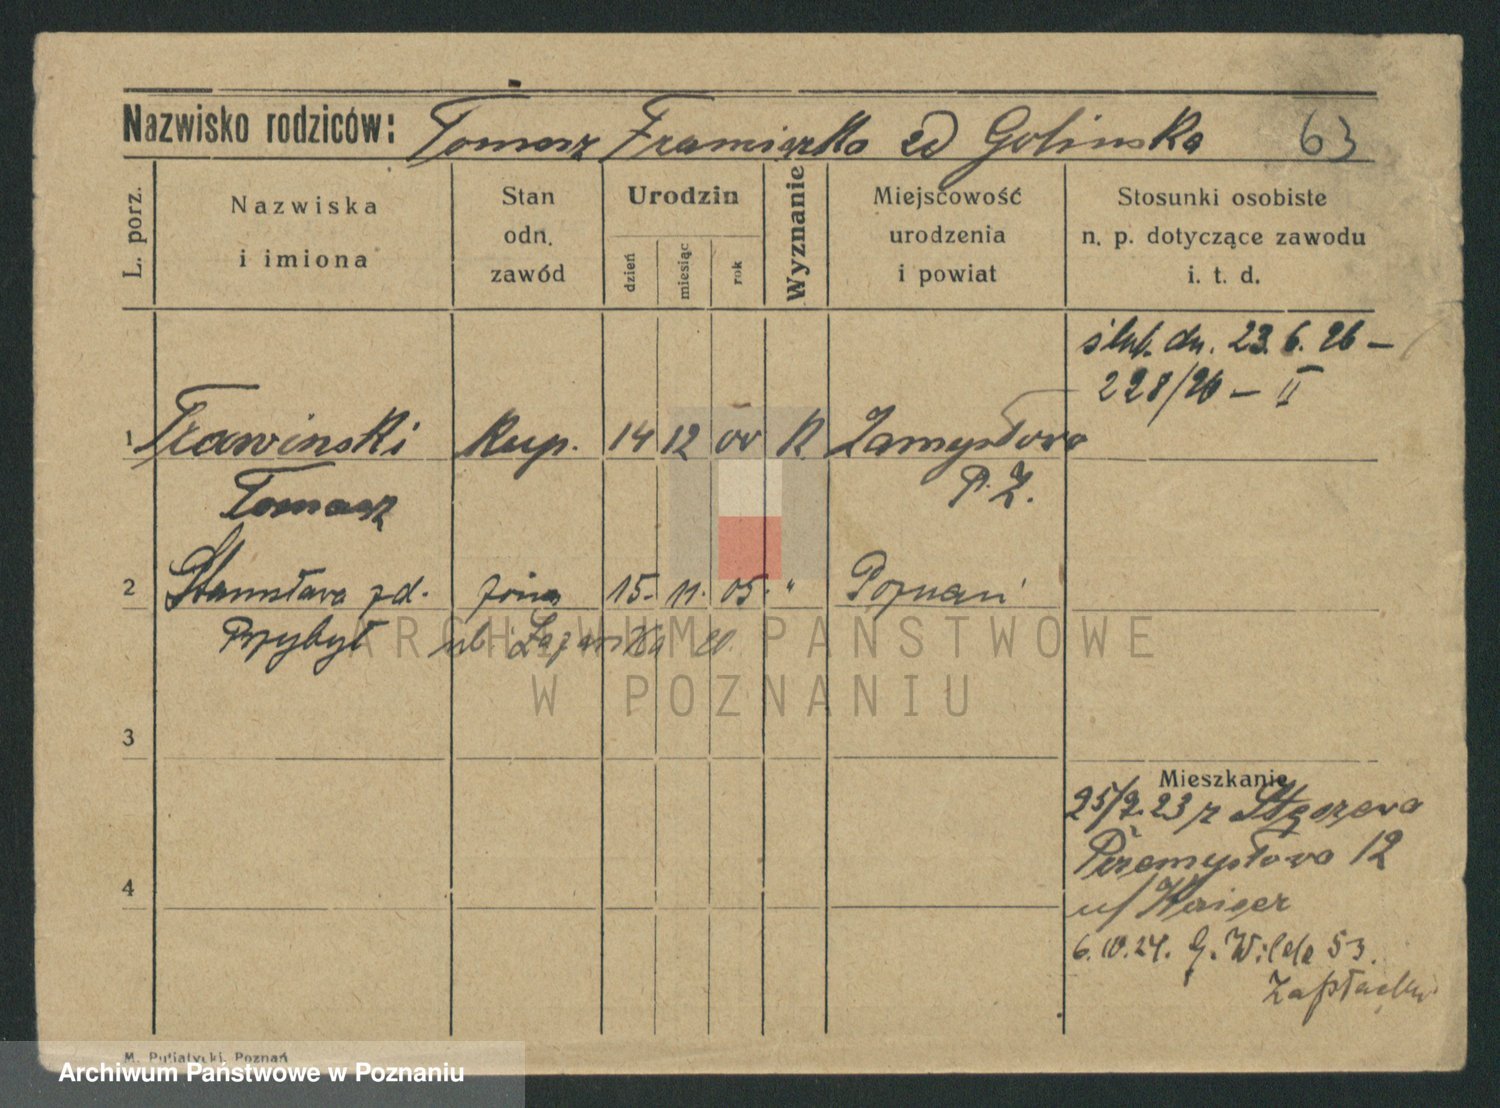 Nazwisko rodziców: Tomasz Franciszka zd Golinska 63
L. porz.
Nazwiska
i imiona
Stan
odn.
zawód
Urodzin
dzień
miesiąc
rok
Wyznanie
Miejscowość
urodzenia
i powiat
Stosunki osobiste
n. p. dotyczące zawodu
i. t. d.
ślub. dn. 23. 6. 26 –
228/26 – II
1 Trawinski kup. 14 12 00 R Zamysłowo
Tomasz P. Z.
2 Stanisława zd. żona 15. 11. 05. " Poznań
Przybył ul. Łazarska
3
Mieszkanie
25/9.23 z Stęszewa
Przemysłowa 12
u/ Kaiser
4
6. IV. 24. G. Wilda 53.
M. Putiatycki, Poznań
ARCHIWUM PAŃSTWOWE
W POZNANIU
Archiwum Państwowe w Poznaniu